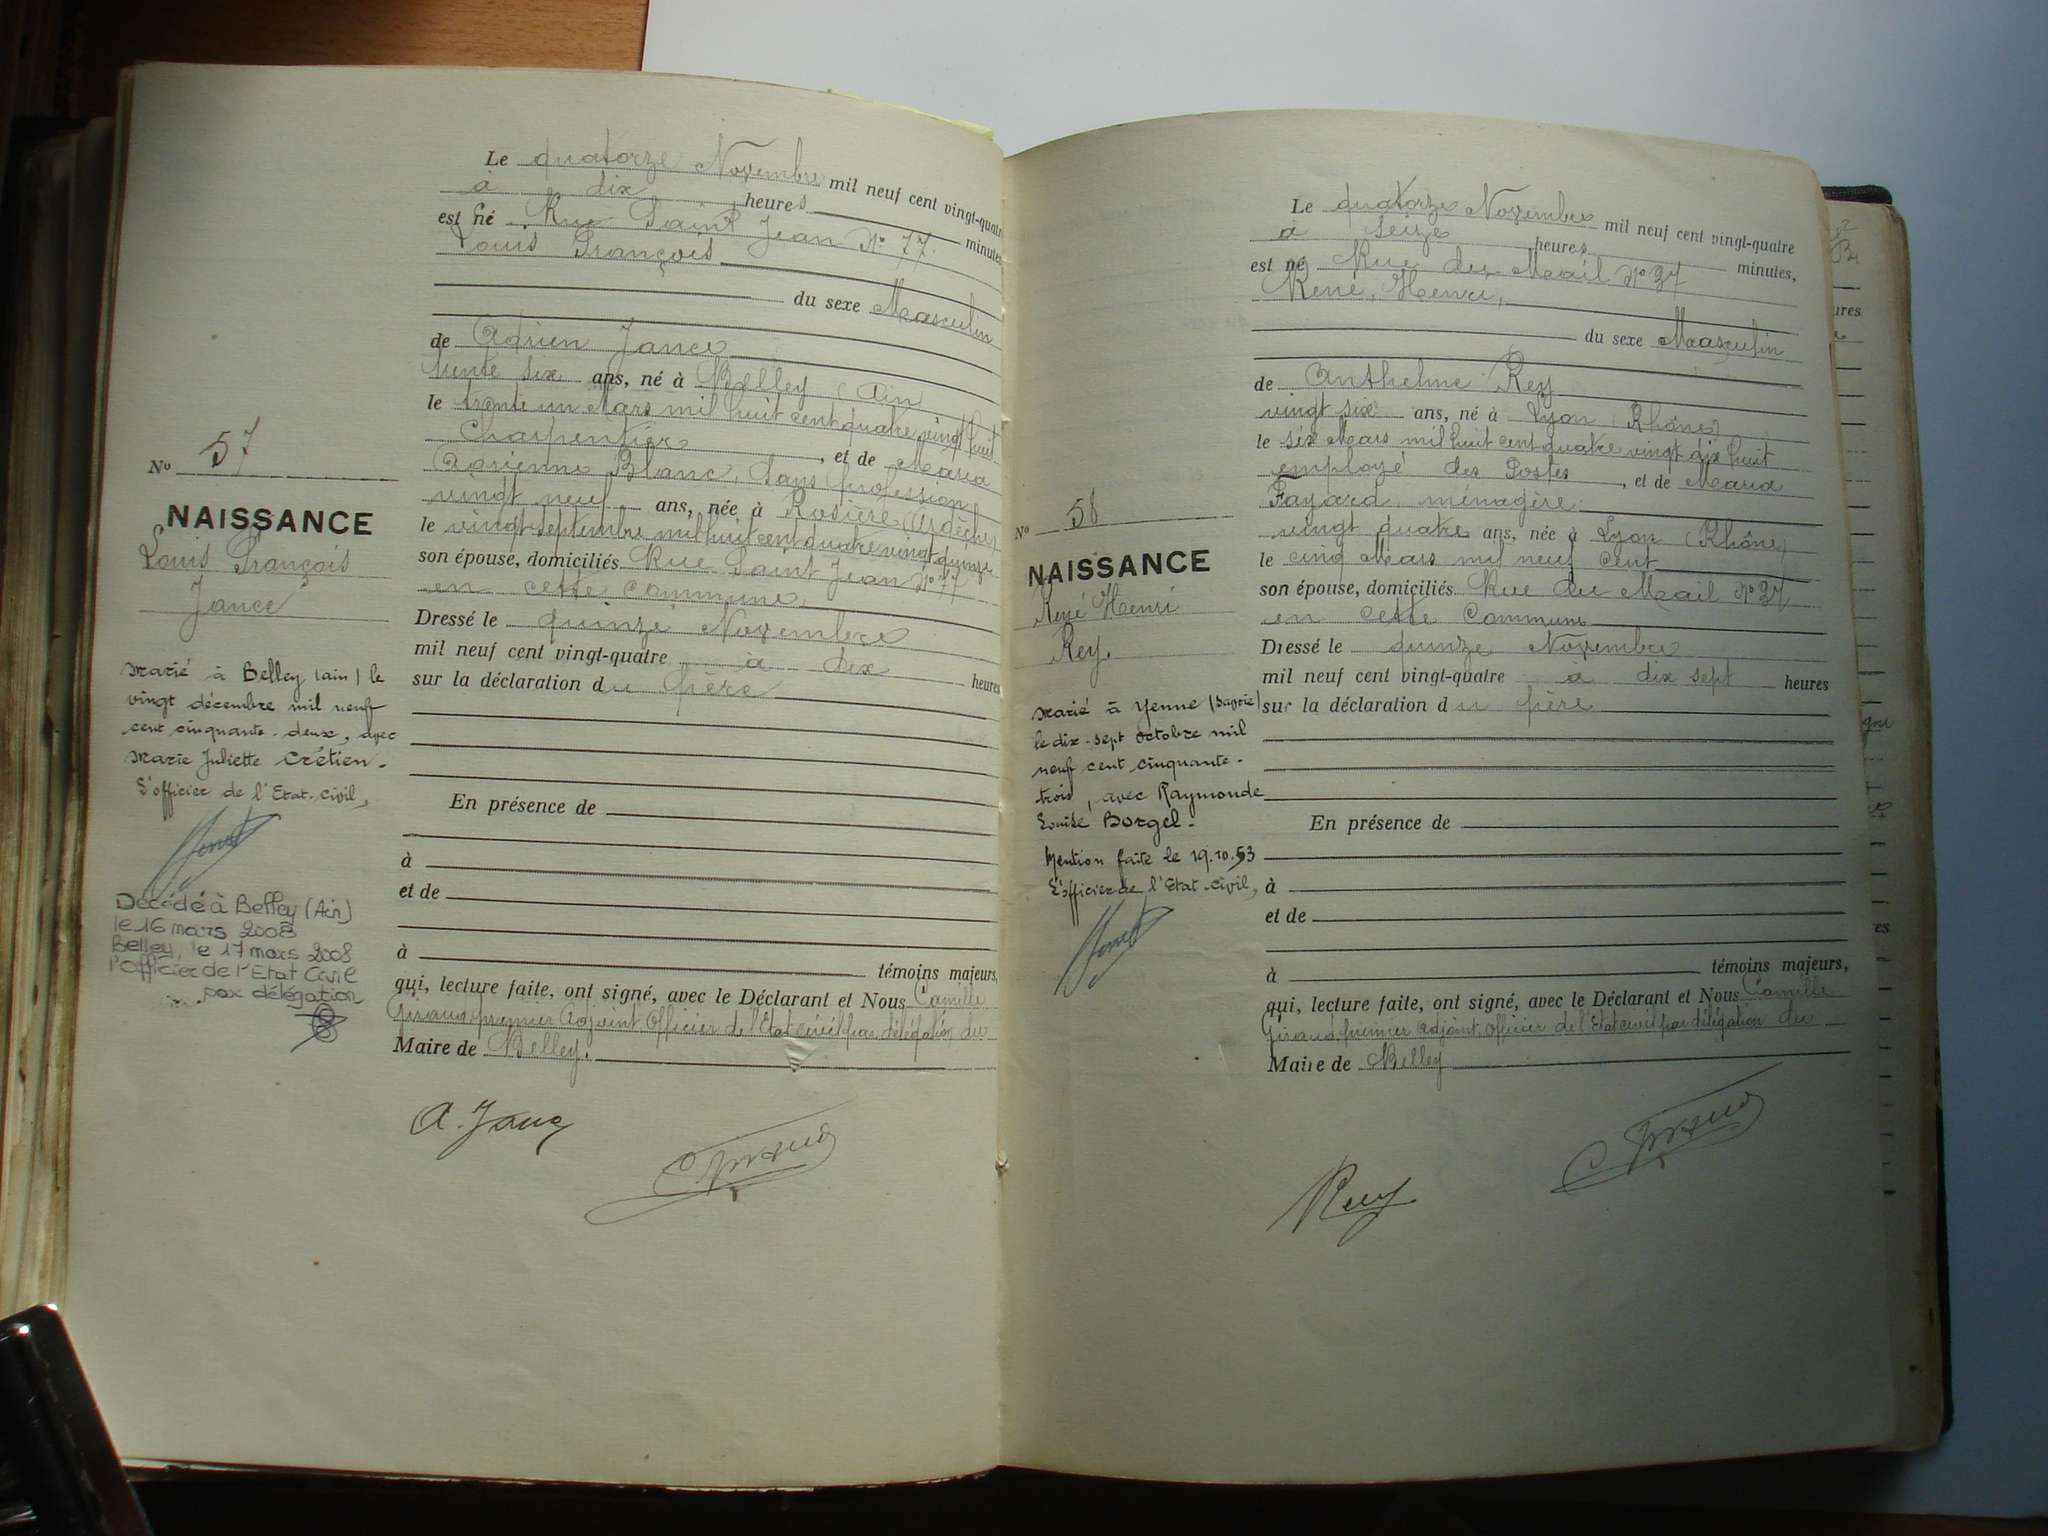 Le quatorze Novembre mil neuf cent vingt-quatre
à dix heures minutes
est né Rue Saint Jean N° 77
Louis François
du sexe Masculin
de Adrien Jance
trente six ans, né à Belley (Ain
le trente un Mars mil huit cent quatre vingt huit
Charpentier, et de Maria
Adrienne Blanc, Sans profession
vingt neuf ans, née à Rosière (Ardèche)
le vingt septembre mil huit cent quatre vingt quinze
son épouse, domiciliés Rue Saint Jean N° 77
en cette commune
Dressé le quinze Novembre
mil neuf cent vingt-quatre à dix heures
sur la déclaration du père
En présence de
à
et de
à
témoins majeurs,
qui, lecture faite, ont signé, avec le Déclarant et Nous Camille
Giraud premier Adjoint Officier de l'Etat civil par délégation du
Maire de Belley.
A. Jance
C Giraud
N° 57
NAISSANCE
Louis François
Jance
Marié à Belley (ain) le
vingt décembre mil neuf
cent cinquante-deux, avec
Marie Juliette Crétien.
L'officier de l'Etat-civil,
Décédé à Belley (Ain)
le 16 mars 2008
Belley, le 17 mars 2008
l'Officier de l'Etat Civil
par délégation
Le quatorze Novembre mil neuf cent vingt-quatre
à seize heures minutes,
est né Rue du Mail N° 37
René, Henri,
du sexe Masculin
de Anthelme Rey
vingt six ans, né à Lyon (Rhône)
le six Mars mil huit cent quatre vingt dix huit
employé des Postes, et de Maria
Fayard, ménagère
vingt quatre ans, née à Lyon (Rhône)
le cinq Mars mil neuf cent
son épouse, domiciliés Rue du Mail N° 37
en cette Commune
Dressé le quinze Novembre
mil neuf cent vingt-quatre à dix sept heures
sur la déclaration du père
En présence de
à
et de
à
témoins majeurs,
qui, lecture faite, ont signé, avec le Déclarant et Nous Camille
Giraud premier adjoint Officier de l'Etat civil par délégation du
Maire de Belley
Rey
C Giraud
No 58
NAISSANCE
René Henri
Rey.
Marié à Yenne (Savoie)
le dix-sept octobre mil
neuf cent cinquante-
trois, avec Raymonde
Louise Borgel.
Mention faite le 19.10.53
L'officier de l'Etat-civil,